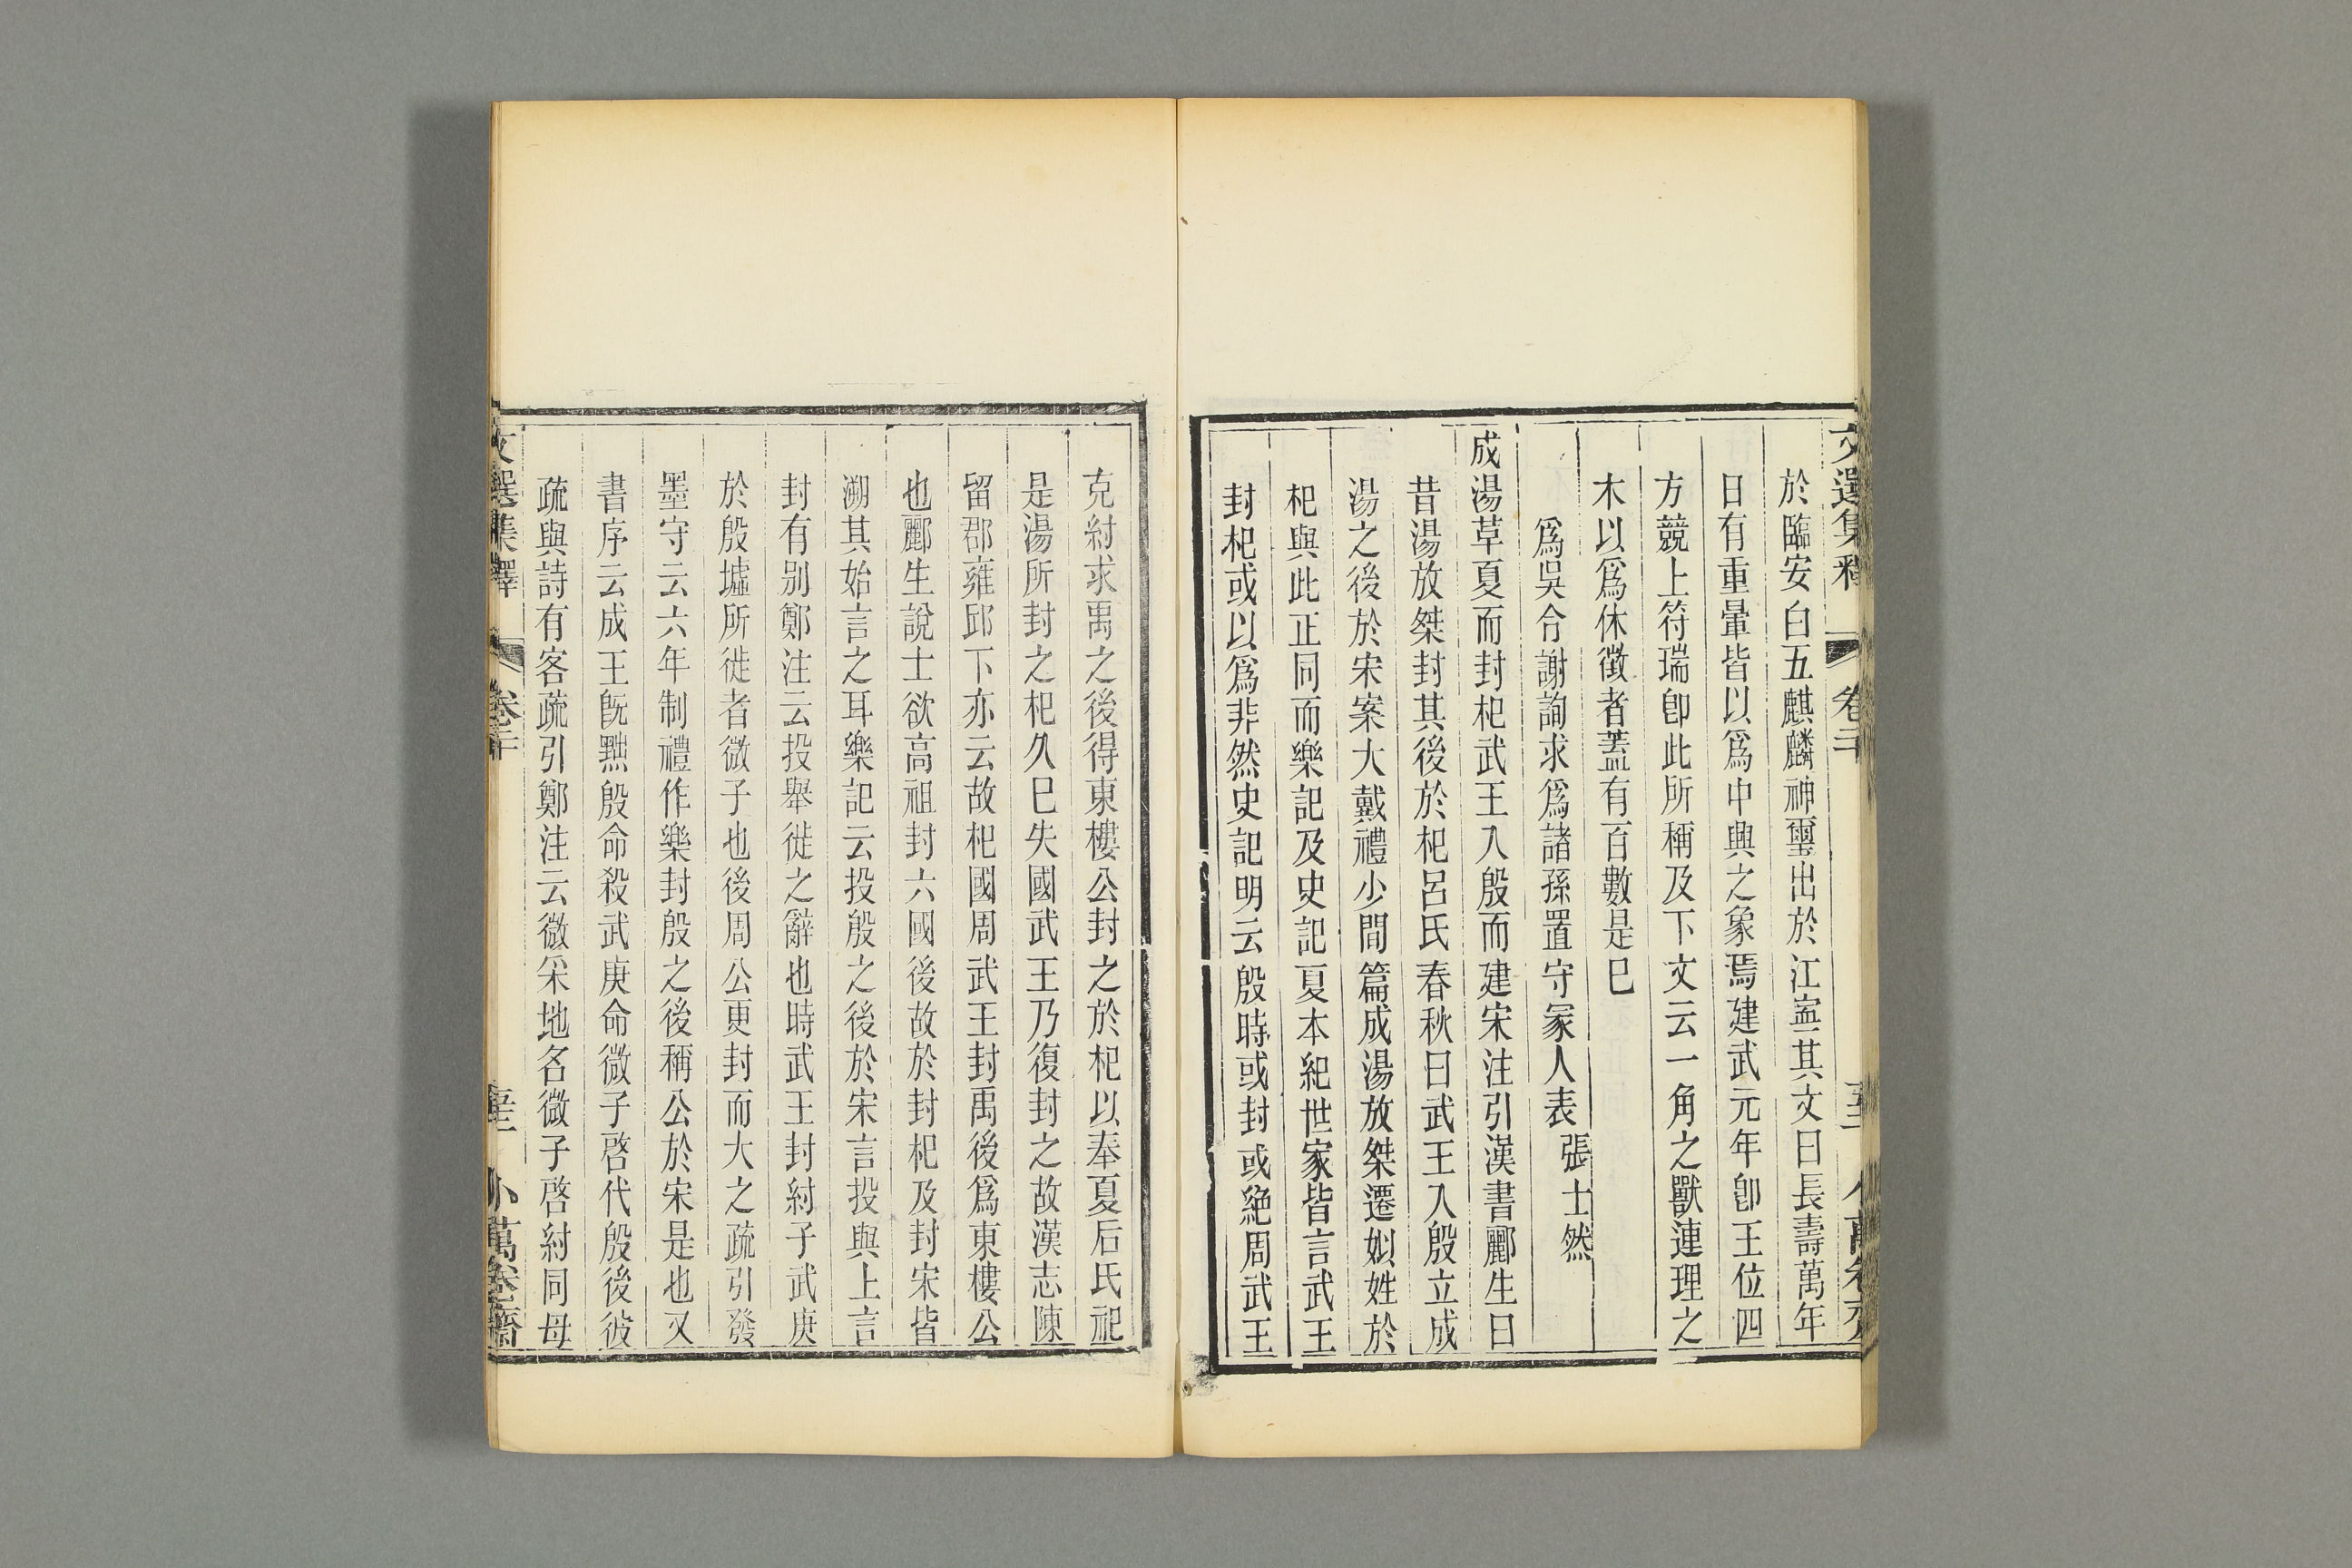 文選集釋 卷二十 小萬卷齋
於臨安白五麒麟神璽出於江寍其文曰長壽萬年
日有重暈皆以爲中興之象焉建武元年卽王位四
方競上符瑞卽此所稱及下文云一角之獸連理之
木以爲休徵者蓋有百數是巳
爲吳令謝詢求爲諸孫置守冢人表 張士然
成湯革夏而封杞武王入殷而建宋注引漢書酈生曰
昔湯放桀封其後於杞呂氏春秋曰武王入殷立成
湯之後於宋案大戴禮少間篇成湯放桀遷姒姓於
杞與此正同而樂記及史記夏本紀世家皆言武王
封杞或以爲非然史記明云殷時或封或絕周武王
克紂求禹之後得東樓公封之於杞以奉夏后氏祀
是湯所封之杞久巳失國武王乃復封之故漢志陳
留郡雍邱下亦云故杞國周武王封禹後爲東樓公
也酈生說士欲高祖封六國後故於封杞及封宋皆
溯其始言之耳樂記云投殷之後於宋言投與上言
封有别鄭注云投舉徙之辭也時武王封紂子武庚
於殷墟所徙者微子也後周公更封而大之疏引發
墨守云六年制禮作樂封殷之後稱公於宋是也又
書序云成王旣黜殷命殺武庚命微子啓代殷後彼
疏與詩有客疏引鄭注云微采地名微子啓紂同母
文選集釋 卷二十 小萬卷齋